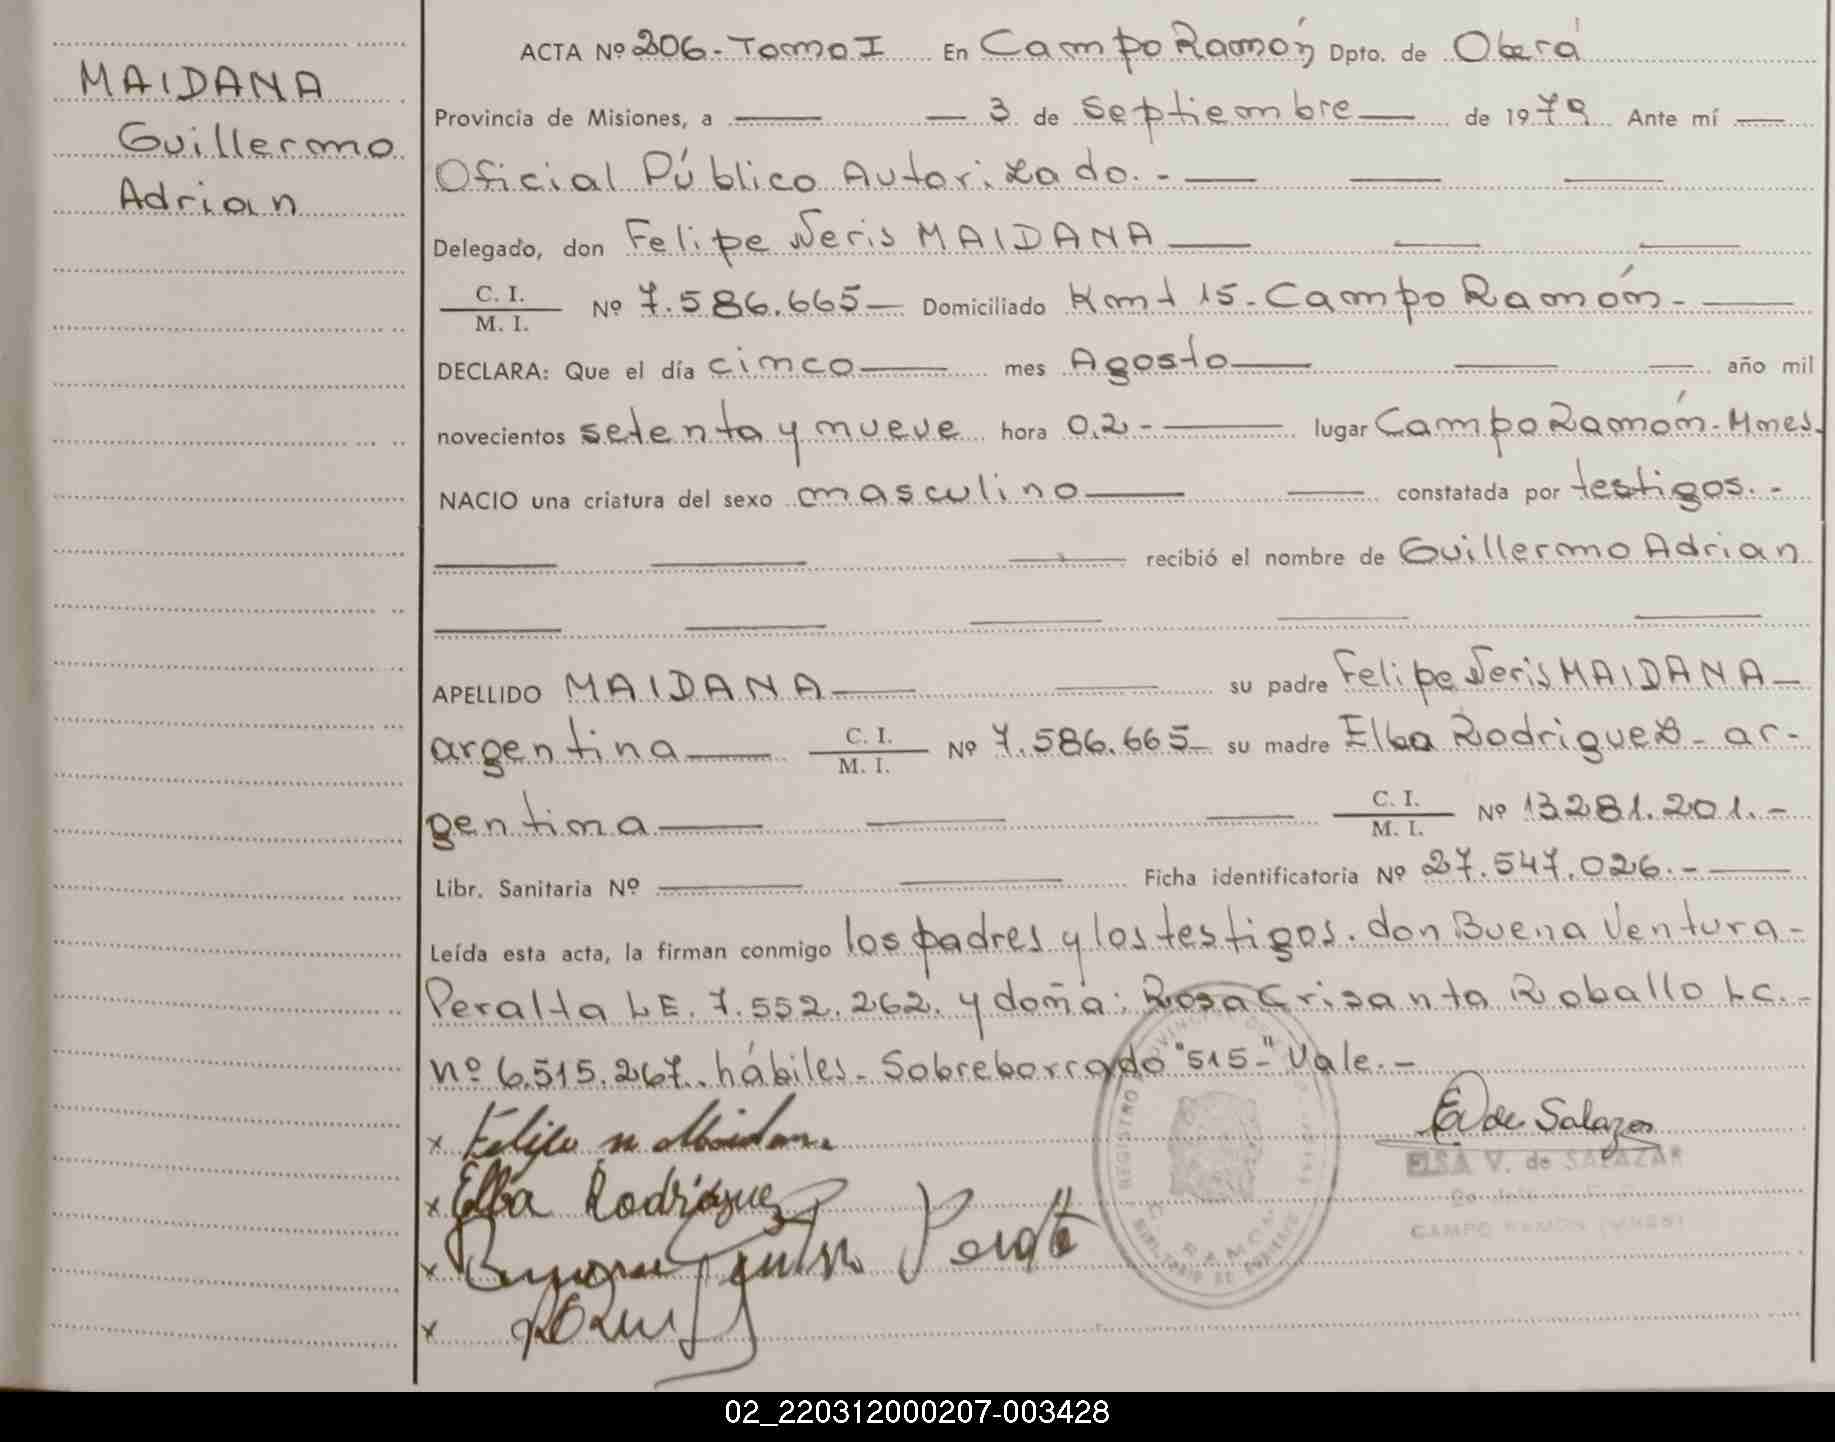 MAIDANA
Guillermo
Adrian
ACTA Nº 206 - Tomo I En Campo Ramón Dpto. de Oberá
Provincia de Misiones, a 3 de Septiembre de 1979 Ante mí
Oficial Público Autorizado. -
Delegado, don Felipe Neris MAIDANA
C. I.
M. I.
Nº 7.586.665 Domiciliado Kmt 15 - Campo Ramón -
DECLARA: Que el día cinco mes Agosto año mil
novecientos setenta y nueve hora 0,2 - lugar Campo Ramón - Mnes.
NACIO una criatura del sexo masculino constatada por testigos. -
recibió el nombre de Guillermo Adrian
APELLIDO MAIDANA su padre Felipe Neris MAIDANA -
argentina C. I.
M. I.
Nº 7.586.665 su madre Elba Rodriguez - ar-
gentina C. I.
M. I.
Nº 13.281.201. -
Libr. Sanitaria Nº Ficha identificatoria Nº 27.547.026. -
Leída esta acta, la firman conmigo los padres y los testigos. don Buena Ventura -
Peralta L E. 7.552.262. y doña: Rosa Crisanta Roballo L c. -
nº 6.515.267. hábiles - Sobreborrado "515-" Vale. -
x Felipe n Maidana
x Elba Rodríguez
x Buenaventura Peralta
x
REGISTRO PROVINCIAL DE
RAMON
E de Salazar
ELSA V. de SALAZAR
CAMPO RAMON (MNES)
02_220312000207-003428